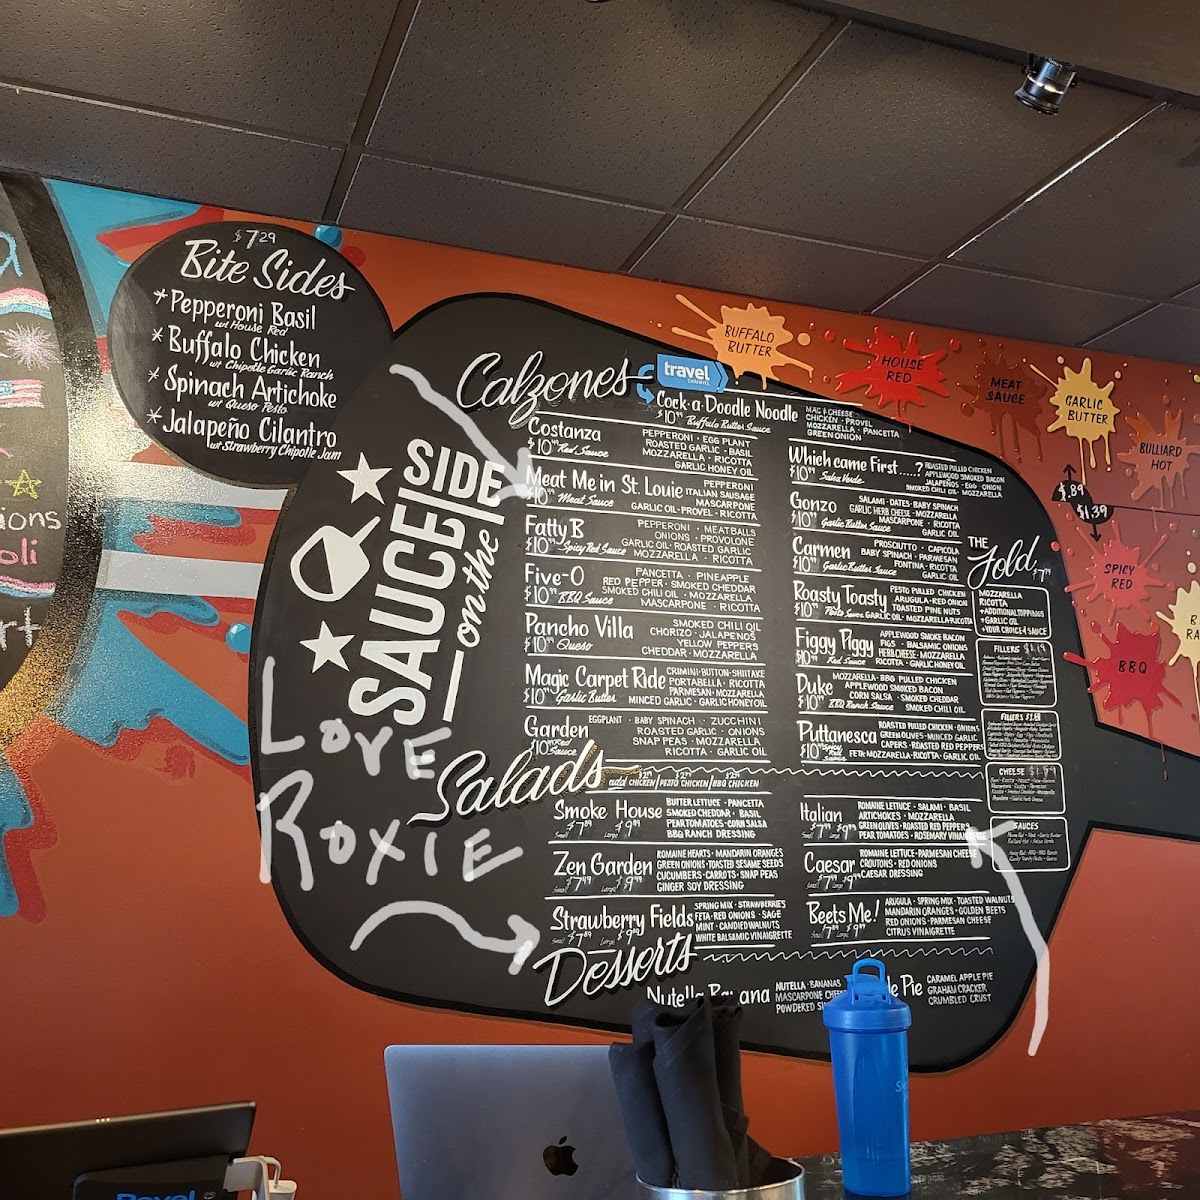 $7.29
Bite Sides
* Pepperoni Basil
w/ House Red
* Buffalo Chicken
w/ Chipotle Garlic Ranch
* Spinach Artichoke
w/ Queso Pesto
* Jalapeño Cilantro
w/ Strawberry Chipotle Jam
ions
oli
SAUCE
on the
SIDE
LOVE
ROXIE
Calzones
travel
CHANNEL
Cock·a·Doodle Noodle
$10.99 Buffalo Butter Sauce
MAC & CHEESE·
CHICKEN · PROVEL
MOZZARELLA · PANCETTA
GREEN ONION
Costanza
$10.99 Red Sauce
PEPPERONI · EGG PLANT
ROASTED GARLIC · BASIL
MOZZARELLA · RICOTTA
GARLIC HONEY OIL
Meat Me in St. Louie
$10.99 Meat Sauce
PEPPERONI
ITALIAN SAUSAGE
MASCARPONE
GARLIC OIL·PROVEL·RICOTTA
Fatty B
$10.99 Spicy Red Sauce
PEPPERONI · MEATBALLS
ONIONS · PROVOLONE
GARLIC OIL·ROASTED GARLIC
MOZZARELLA · RICOTTA
Five-O
$10.99 BBQ Sauce
PANCETTA · PINEAPPLE
RED PEPPER · SMOKED CHEDDAR
SMOKED CHILI OIL · MOZZARELLA
MASCARPONE · RICOTTA
Pancho Villa
$10.99 Queso
SMOKED CHILI OIL
CHORIZO · JALAPEÑOS
YELLOW PEPPERS
CHEDDAR·MOZZARELLA
Magic Carpet Ride
$10.99 Garlic Butter
CRIMINI·BUTTON·SHIITAKE
PORTABELLA · RICOTTA
PARMESAN·MOZZARELLA
MINCED GARLIC · GARLIC HONEY OIL
Garden
$10.99 Red Sauce
EGGPLANT · BABY SPINACH · ZUCCHINI
ROASTED GARLIC · ONIONS
SNAP PEAS · MOZZARELLA
RICOTTA · GARLIC OIL
Which came First.....?
$10.99 Salsa Verde
ROASTED PULLED CHICKEN
APPLEWOOD SMOKED BACON
JALAPEÑOS · EGG · ONION
SMOKED CHILI OIL · MOZZARELLA
Gonzo
$10.99 Garlic Butter Sauce
SALAMI · DATES·BABY SPINACH
GARLIC HERB CHEESE·MOZZARELLA
MASCARPONE · RICOTTA
GARLIC OIL
Carmen
$10.99 Garlic Butter Sauce
PROSCIUTTO · CAPICOLA
BABY SPINACH · PARMESAN
FONTINA · RICOTTA
GARLIC OIL
Roasty Toasty
$10.99 Pesto Sauce
PESTO PULLED CHICKEN
ARUGULA·RED ONION
TOASTED PINE NUTS
GARLIC OIL·MOZZARELLA·RICOTTA
Figgy Piggy
$10.99 Red Sauce
APPLEWOOD SMOKE BACON
FIGS · BALSAMIC ONIONS
HERB CHEESE·MOZZARELLA
RICOTTA · GARLIC HONEY OIL
Duke
$10.99 BBQ Ranch Sauce
MOZZARELLA·BBQ PULLED CHICKEN
APPLEWOOD SMOKED BACON
CORN SALSA · SMOKED CHEDDAR
SMOKED CHILI OIL
Puttanesca
$10.99 Spicy Red Sauce
ROASTED PULLED CHICKEN·ONIONS
GREEN OLIVES·MINCED GARLIC
CAPERS·ROASTED RED PEPPERS
FETA·MOZZARELLA·RICOTTA·GARLIC OIL
THE
Fold
$7.99
MOZZARELLA
RICOTTA
+ADDITIONAL TOPPINGS
+GARLIC OIL
+YOUR CHOICE 4 SAUCE
FILLERS
FILLERS
CHEESE
SAUCES
Salads
add CHICKEN/PESTO CHICKEN/BBQ CHICKEN
Smoke House
Small $7.89 Large $9.99
BUTTER LETTUCE · PANCETTA
SMOKED CHEDDAR · BASIL
PEAR TOMATOES·CORN SALSA
BBQ RANCH DRESSING
Zen Garden
Small $7.89 Large $9.99
ROMAINE HEARTS · MANDARIN ORANGES
GREEN ONIONS·TOASTED SESAME SEEDS
CUCUMBERS·CARROTS·SNAP PEAS
GINGER SOY DRESSING
Strawberry Fields
Small $7.89 Large $9.99
SPRING MIX · STRAWBERRIES
FETA·RED ONIONS · SAGE
MINT · CANDIED WALNUTS
WHITE BALSAMIC VINAIGRETTE
Italian
Small $7.89 $9.99
ROMAINE LETTUCE · SALAMI · BASIL
ARTICHOKES · MOZZARELLA
GREEN OLIVES·ROASTED RED PEPPERS
PEAR TOMATOES·ROSEMARY
Caesar
Small $7.89 $9.99
ROMAINE LETTUCE·PARMESAN CHEESE
CROUTONS·RED ONIONS
CAESAR DRESSING
Beets Me!
Small $7.89 $9.99
ARUGULA · SPRING MIX·TOASTED WALNUTS
MANDARIN ORANGES · GOLDEN BEETS
RED ONIONS · PARMESAN CHEESE
CITRUS VINAIGRETTE
Desserts
Nutella
NUTELLA·BANANAS
MASCARPONE
POWDERED
Pie
CARAMEL APPLE PIE
GRAHAM CRACKER
CRUMBLED CRUST
BUFFALO
BUTTER
HOUSE
RED
MEAT
SAUCE
GARLIC
BUTTER
BULLIARD
HOT
$.89
$1.39
SPICY
RED
BBQ